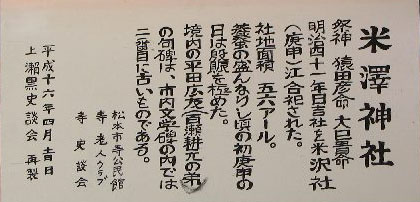 米澤神社
祭神 猿田彦命 大己貴命
明治四十一年日吉社を米沢社
(庚申)江合祀された。
社地面積 五六アール。
養蚕の盛んなりし頃の初庚申の
日は殷賑を極めた。
境内の平田広茂(百瀬耕元の弟)
の句碑は、市内文学碑の内では
二番目に古いものである。
松本市寺公民館
寺老人クラブ
寺史談会
平成十六年四月吉日
上瀬黒史談会 再製